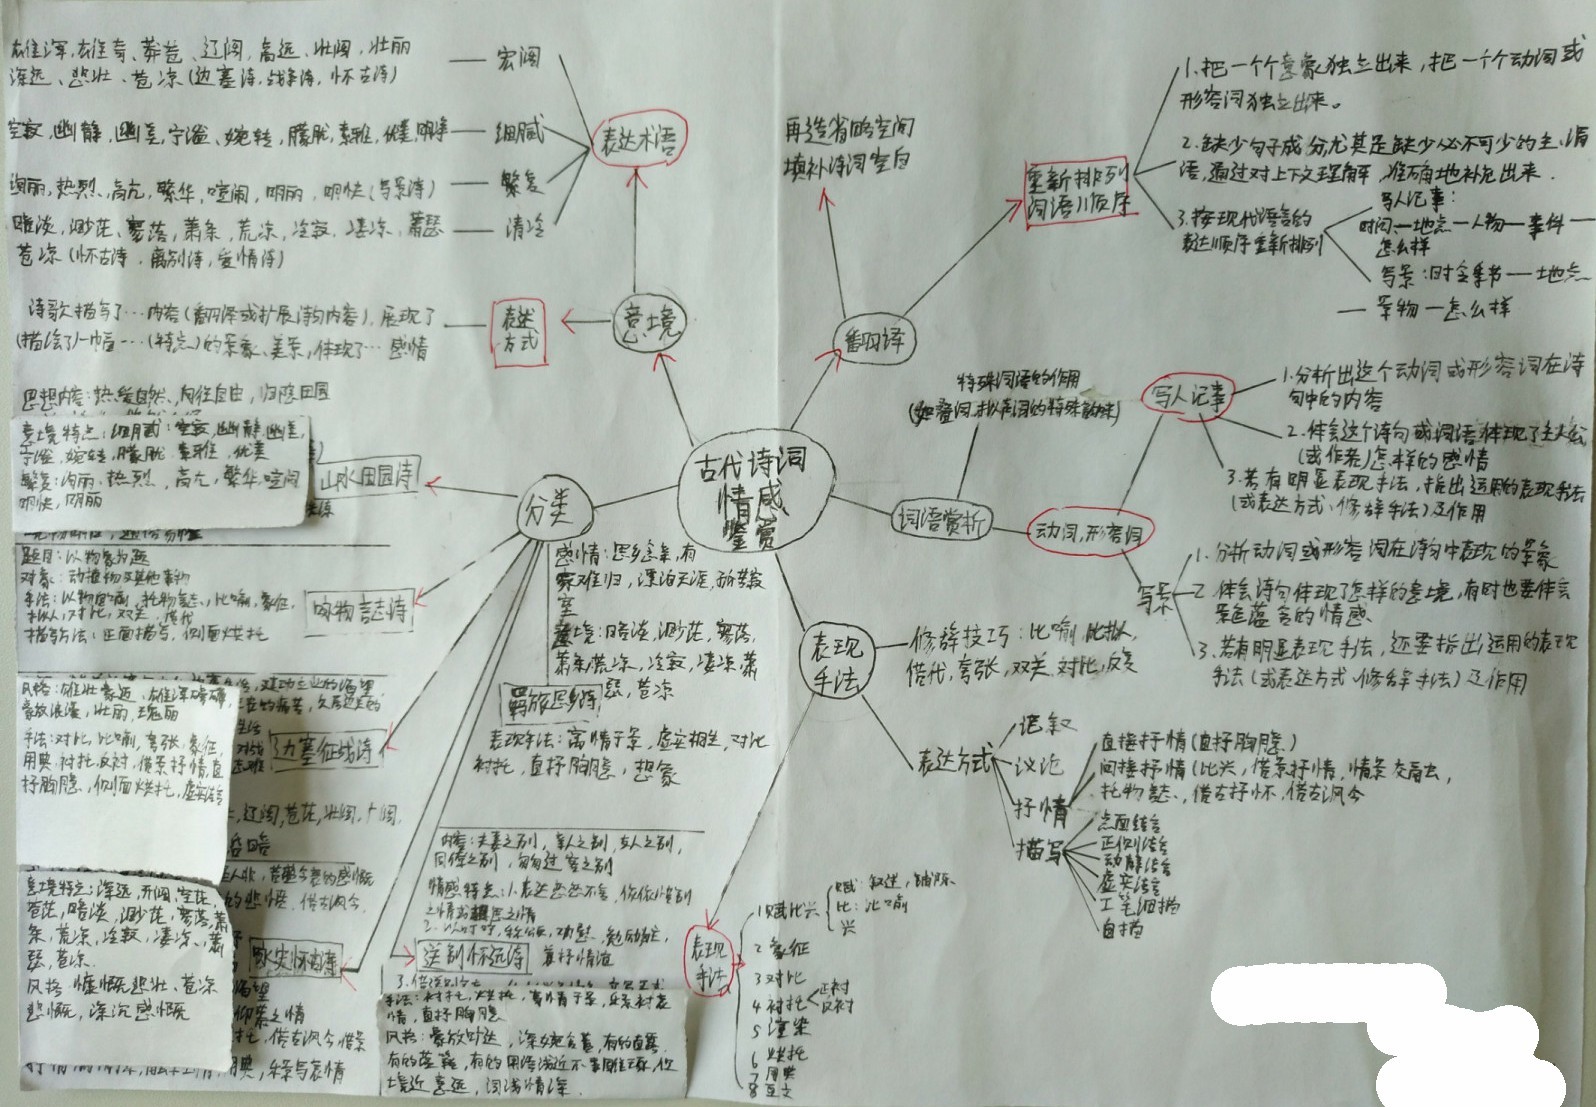 古代诗词
情感
鉴赏
意境
表达术语
宏阔
雄浑,雄奇、莽苍、辽阔,高远、壮阔,壮丽
深远、悲壮、苍凉(边塞诗,战争诗,怀古诗)
细腻
空寂,幽静,幽美,宁谧、婉转,朦胧,素雅,优美,明净
繁复
绚丽,热烈,高亢,繁华,喧闹,明丽,明快(写景诗)
清冷
暗淡,渺茫、寥落,萧条,荒凉,冷寂,凄凉,萧瑟
苍凉(怀古诗,离别诗,爱情诗)
表述
方式
诗歌描写了…内容(翻译或扩展诗句内容),展现了
(描绘了)一幅…(特点)的景象、美景,体现了…感情
翻译
再造省略空间
填补诗词空白
重新排列
词语顺序
1.把一个个意象独立出来,把一个个动词或
形容词独立出来。
2.缺少句子成分,尤其是缺少必不可少的主、谓
语,通过对上下文理解,准确地补充出来.
3.按现代语言的
表达顺序重新排列
写人记事:
时间—地点—人物—事件—
怎么样
写景:时令季节—地点
—景物—怎么样
词语赏析
特殊词语的作用
(如叠词,拟声词的特殊韵味)
动词,形容词
写人记事
1.分析出这个动词或形容词在诗
句中的内容
2.体会这个诗句或词语体现了主人公
(或作者)怎样的感情
3.若有明显表现手法,指出运用的表现手法
(或表达方式、修辞手法)及作用
写景
1.分析动词或形容词在诗句中表现的景象
2.体会诗句体现了怎样的意境,有时也要体会
景色蕴含的情感.
3.若有明显表现手法,还要指出运用的表现
手法(或表达方式、修辞手法)及作用
表现
手法
修辞技巧:比喻,比拟,
借代,夸张,双关,对比,反复
表达方式
记叙
议论
抒情
直接抒情(直抒胸臆)
间接抒情(比兴,借景抒情,情景交融,
托物言志,借古抒怀,借古讽今
描写
点面结合
正侧结合
动静结合
虚实结合
工笔细描
白描
表现
手法
1赋比兴
赋:叙述,铺陈.
比:比喻
兴
2象征
3对比
4衬托
正衬
反衬
5渲染
6烘托
7用典
8互文
分类
山水田园诗
思想内容:热爱自然,向往自由,归隐田园
意境特点:细腻:空寂,幽静,幽美,
宁谧,婉转,朦胧,素雅,优美
繁复:绚丽,热烈,高亢,繁华,喧闹
明快,明丽
咏物言志诗
题目:以物象为题
对象:动植物及其他事物
手法:以物自喻,托物言志,比喻,象征,
拟人,对比,双关,借代
描写方法:正面描写,侧面烘托
边塞征战诗
风格:雄壮豪迈,雄浑磅礴,
豪放浪漫,壮丽,瑰丽
手法:对比,比喻,夸张,象征,
用典,衬托,反衬,借景抒情,直
抒胸臆,侧面烘托,虚实结合
辽阔,苍茫,壮阔,广阔,
咏史怀古诗
意境特点:深远,开阔,空茫,
苍茫,暗淡,渺茫,寥落,萧
条,荒凉,冷寂,凄凉,萧
瑟,苍凉.
风格:慷慨悲壮、苍凉
悲慨,深沉感慨
仰慕之情
借古讽今,借景
羁旅思乡诗
感情:思乡念亲,有
家难归,漂泊天涯,孤苦寂
意境:暗淡,渺茫,寥落,
萧条,荒凉,冷寂,凄凉,萧
瑟,苍凉
表现手法:寓情于景,虚实相生,对比
衬托,直抒胸臆,想象
送别怀远诗
内容:夫妻之别,亲人之别,友人之别,
同僚之别,匆匆过客之别
情感特点:1.表达恋恋不舍,依依惜别
之情或想思之情
手法:衬托,烘托,寓情于景,乐景衬哀
情,直抒胸臆
风格:豪放旷达,深婉含蓄,有的直露